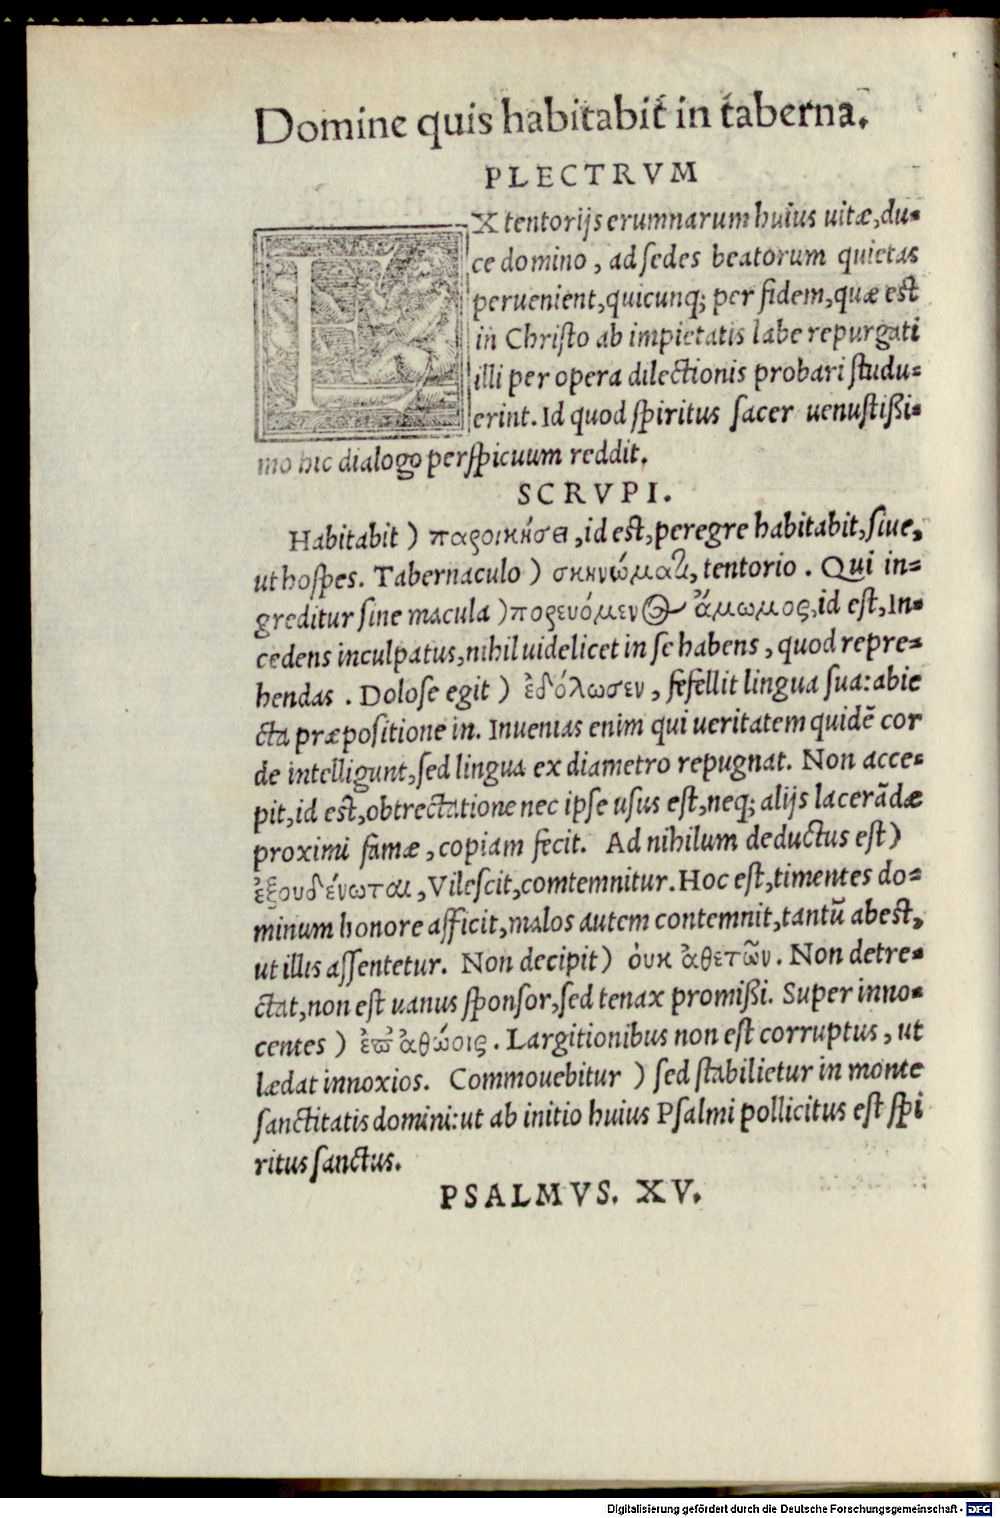 Domine quis habitabit in taberna.
PLECTRVM
EX tentorijs erumnarum huius uitæ, du-
ce domino, ad sedes beatorum quietas
peruenient, quicunq; per fidem, quæ est
in Christo ab impietatis labe repurgati
illi per opera dilectionis probari studu-
erint. Id quod spiritus sacer uenustißi-
mo hic dialogo perspicuum reddit.
SCRVPI.
Habitabit) παροικήσει, id est, peregre habitabit, siue,
ut hospes. Tabernaculo) σκηνώματι, tentorio. Qui in-
greditur sine macula) πορευόμενος ἄμωμος, id est, In-
cedens inculpatus, nihil uidelicet in se habens, quod repre-
hendas. Dolose egit) ἐδόλωσεν, fefellit lingua sua: abie
cta præpositione in. Inuenias enim qui ueritatem quidē cor
de intelligunt, sed lingua ex diametro repugnat. Non acce-
pit, id est, obtrectatione nec ipse usus est, neq; alijs lacerādæ
proximi famæ, copiam fecit. Ad nihilum deductus est)
ἐξουδένωται, Vilescit, comtemnitur. Hoc est, timentes do-
minum honore afficit, malos autem contemnit, tantū abest,
ut illis assentetur. Non decipit) ὀυκ ἀθετῶν. Non detre-
ctat, non est uanus sponsor, sed tenax promißi. Super inno-
centes) ἐπ' ἀθώοις. Largitionibus non est corruptus, ut
lædat innoxios. Commouebitur) sed stabilietur in monte
sanctitatis domini: ut ab initio huius Psalmi pollicitus est spi
ritus sanctus.
PSALMVS. XV.
Digitalisierung gefördert durch die Deutsche Forschungsgemeinschaft - DFG